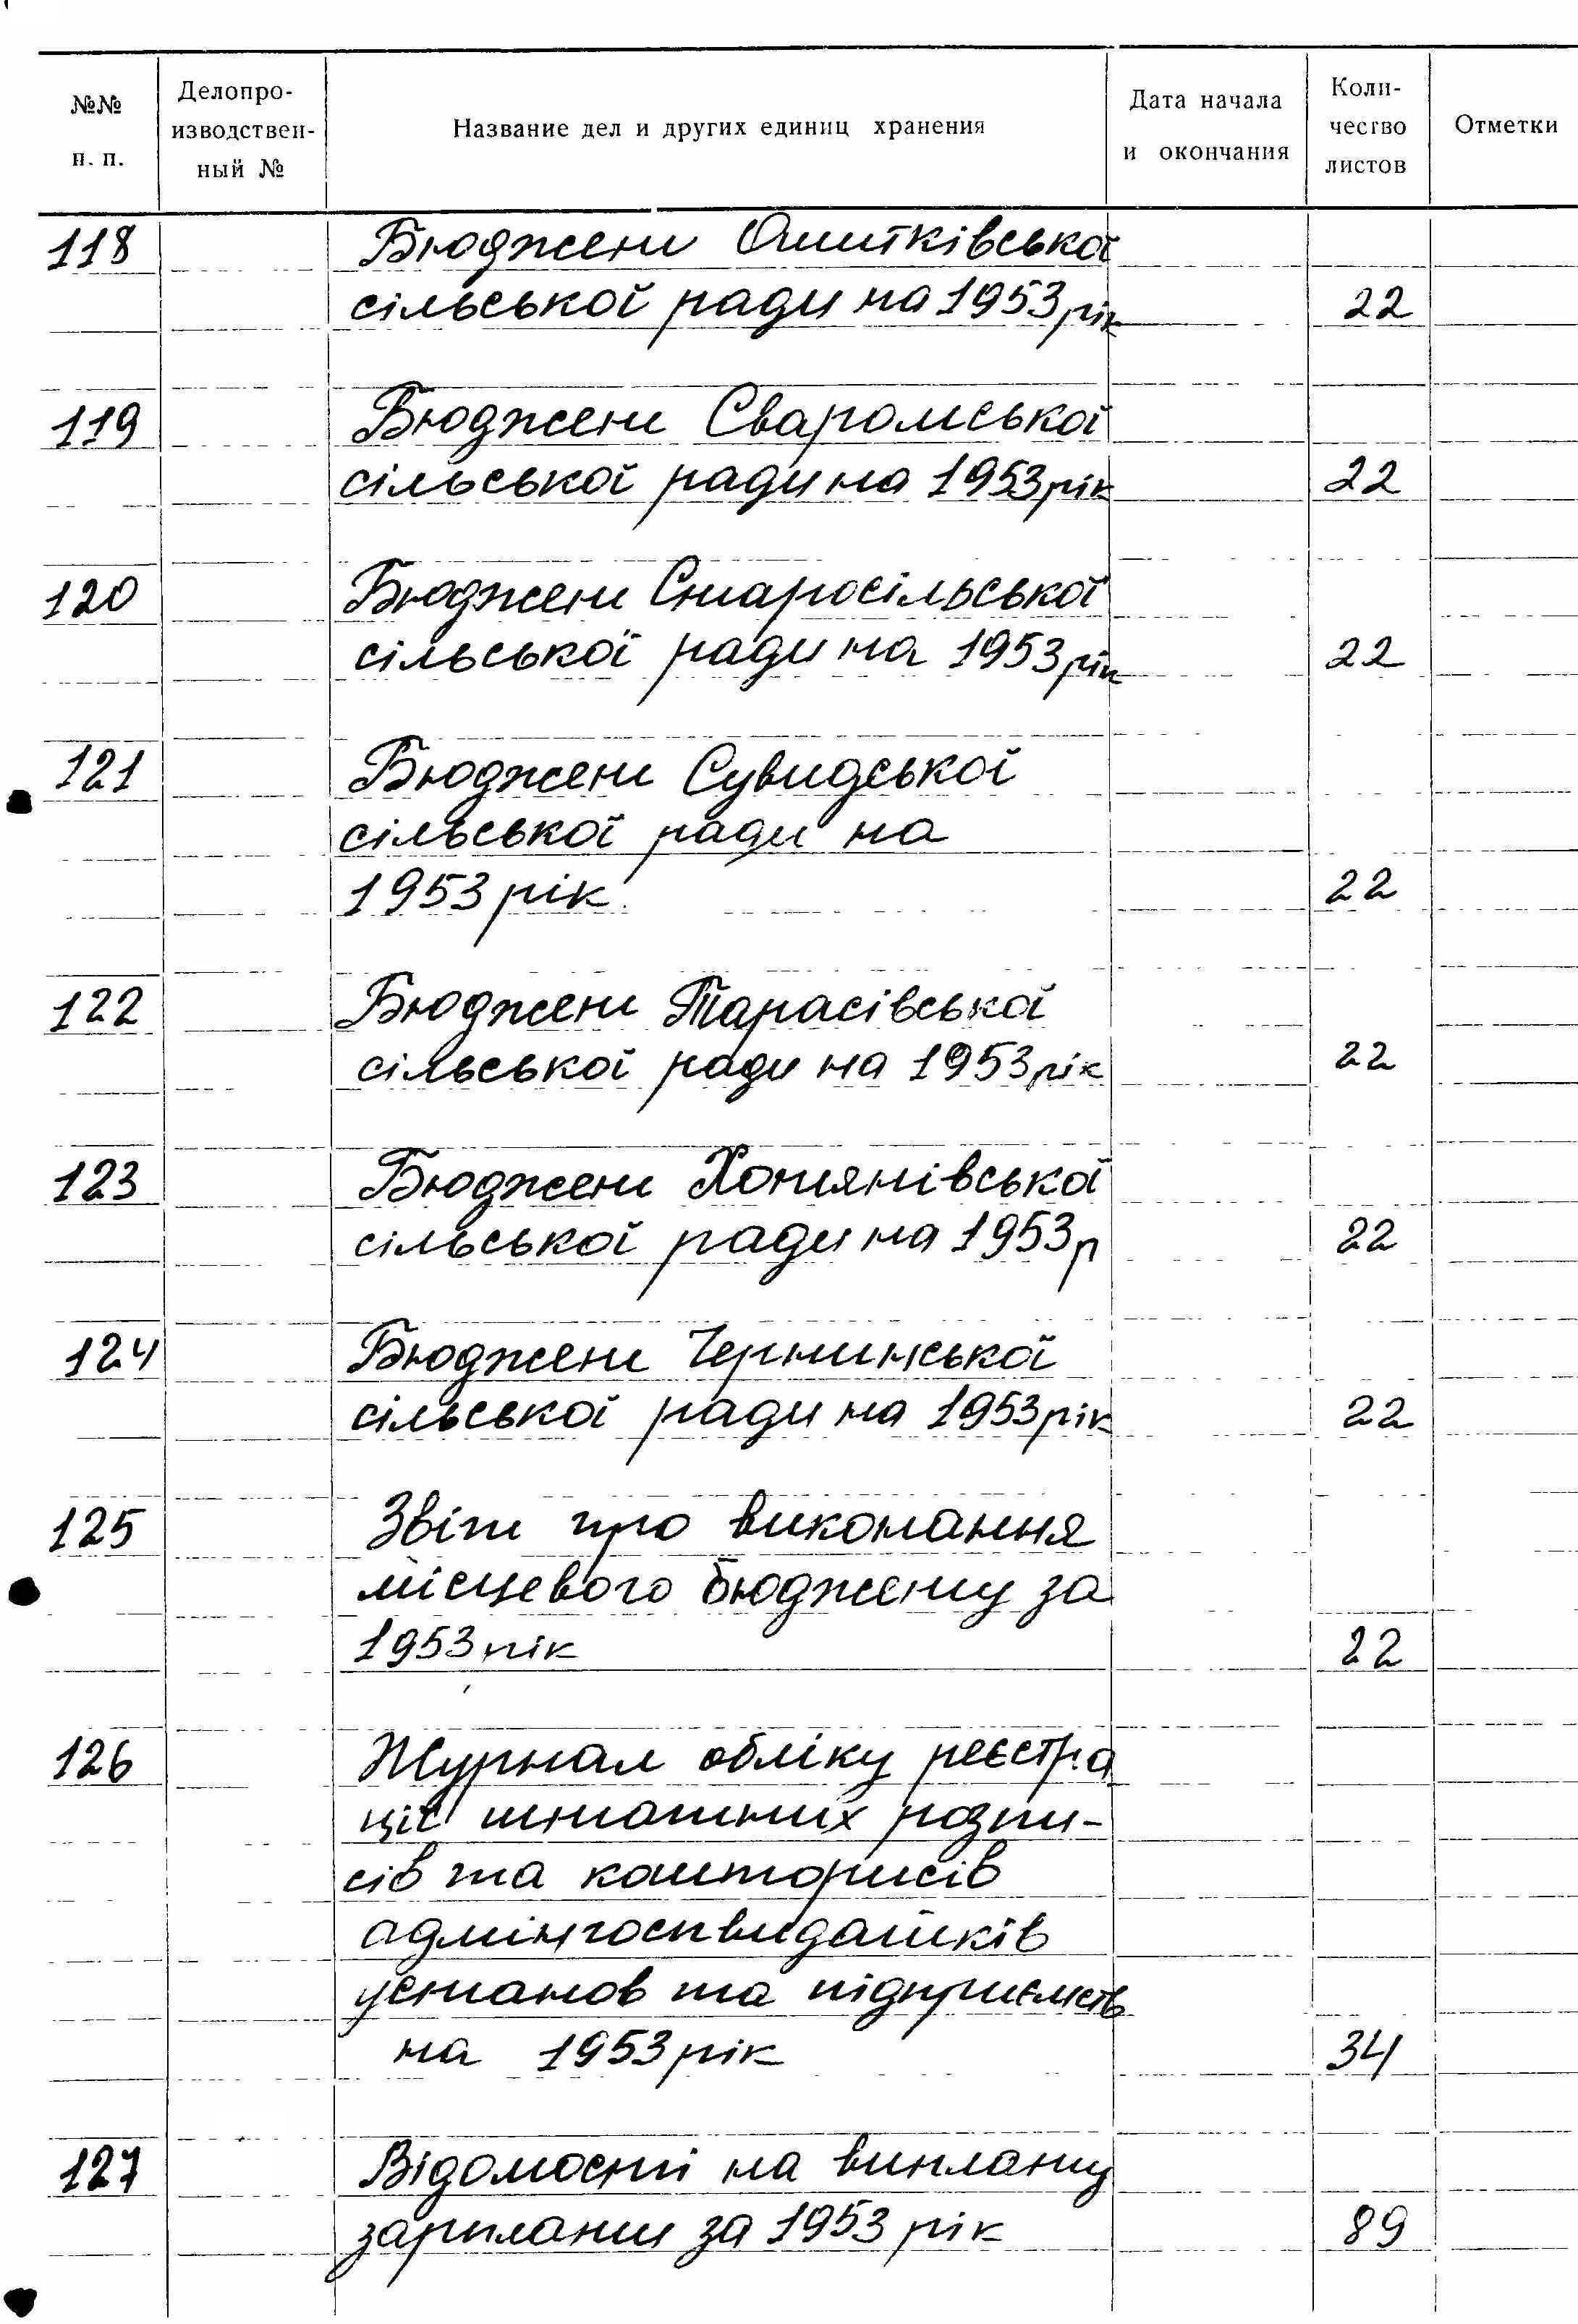 №№ н. п. Делопро-изводствен-ный № Название дел и других единиц хранения Дата начала и окончания Коли-чество листов Отметки
118 Бюджет Ошитківської
сільської ради на 1953 рік 22
119 Бюджет Сваромської
сільської ради на 1953 рік 22
120 Бюджет Старосільської
сільської ради на 1953 рік 22
121 Бюджет Сувидської
сільської ради на
1953 рік 22
122 Бюджет Тарасівської
сільської ради на 1953 рік 22
123 Бюджет Хотянівської
сільської ради на 1953 р
22
124 Бюджет Чернинської
сільської ради на 1953 рік 22
125 Звіт про виконання
місцевого бюджету за
1953 рік 22
126 Журнал обліку реєстра
ціі штатних розпи-
сів та кошторисів
адмінгоспвидатків
установ та підприємств
на 1953 рік 34
127 Відомості на виплату
зарплати за 1953 рік 89